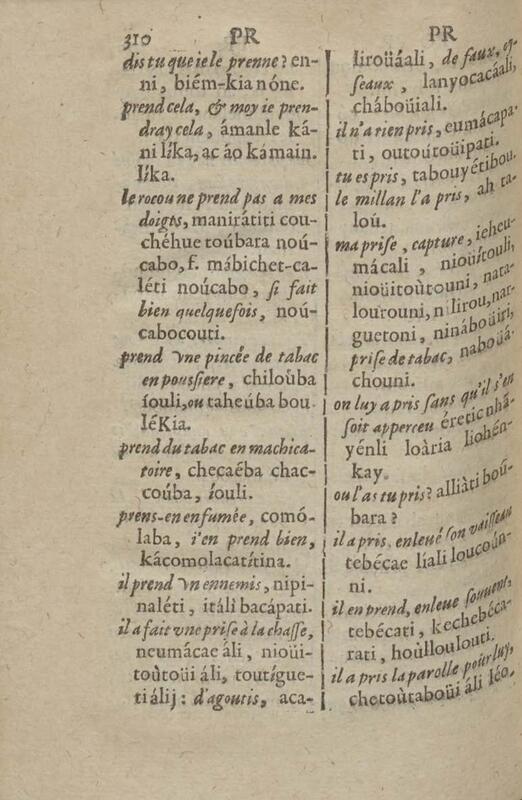 310 PR
dis tu que ie le prenne ? en-
ni, biém-kia nóne.
prend cela, & moy ie pren-
dray cela, ámanle ká-
ni líka, ac áo kámain.
líka.
le rocou ne prend pas a mes
doigts, manirátiti cou-
chéhue toúbara noú-
cabo, f. mábichet-ca-
léti noúcabo, si fait
bien quelquefois, noú-
cabocouti.
prend vne pincée de tabac
en poussiere, chiloúba
íouli, ou taheúba bou
léKia.
prend du tabac en machica-
toire, checaéba chac-
coúba, íouli.
prens-en en fumée, comó-
laba, i'en prend bien,
kácomolacatítina.
il prend vn ennemis, nipi-
naléti, itáli bacápati.
il a fait vne prise à la chasse,
neumácae áli, nioüi-
toùtoüi áli, toutígue-
ti álij : d'agoutis, aca-
PR
liroüáali, de faux, oy-
seaux, lanyocacáali,
cháboüiali.
il n'a rien pris, eumácapa-
ti, outoútoüipati.
tu es pris, tabouyétibou.
le millan l'a pris, ah ta-
loú.
ma prise, capture, ieheu-
mácali, nioüítouli,
nioüitoùtouni, nata-
lourouni, nilirou, nar-
guetoni, ninábouiri,
prise de tabac, naboüá-
chouni.
on luy a pris sans qu'il s'en
soit apperceu éreticnhá-
yénli loària liohén-
kay.
ou l'as tu pris ? alliàti boú-
bara ?
il a pris, enleué son vaisseau
tebécae líali loucoún-
ni.
il en prend, enleue souuent,
tebécati, kechebéca-
rati, hoùlloulouti.
il a pris la parolle pour luy,
chetoùtaboüi áli léo.